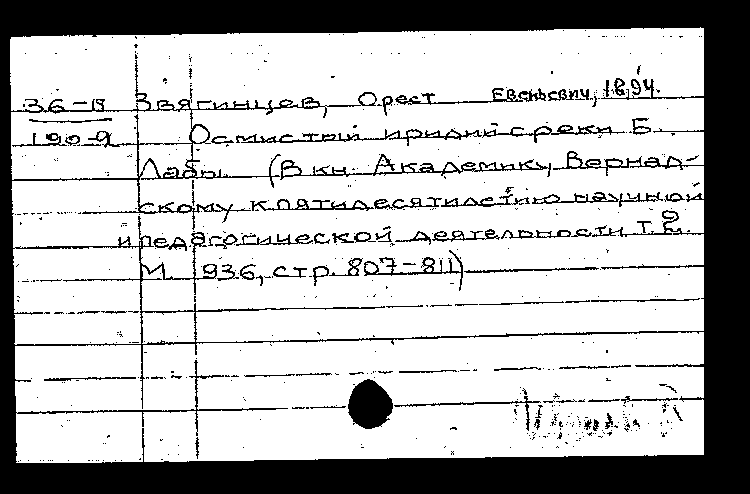 36-19 Звягинцев, Орест Евеньевич, 1894.
190-9 Осмистый иридий с реки Б.
Лабы. (В кн. Академику Вернад-
скому к пятидесятилетию научной
и педагогической деятельности Т. 2.
М. 1936, стр. 807-811)